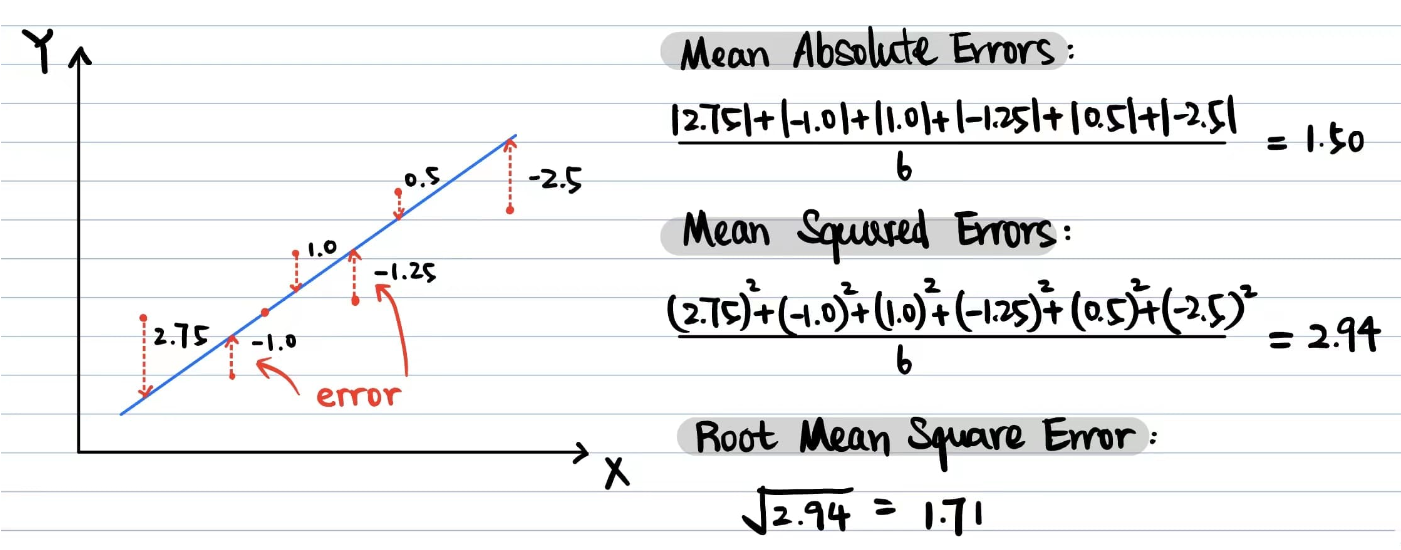 Y
0.5
-2.5
1.0
-1.25
2.75
-1.0
error
X
Mean Absolute Errors:
|2.75|+|-1.0|+|1.0|+|-1.25|+|0.5|+|-2.5|
6
= 1.50
Mean Squared Errors:
(2.75)²+(-1.0)²+(1.0)²+(-1.25)²+(0.5)²+(-2.5)²
6
= 2.94
Root Mean Square Error:
√2.94 = 1.71